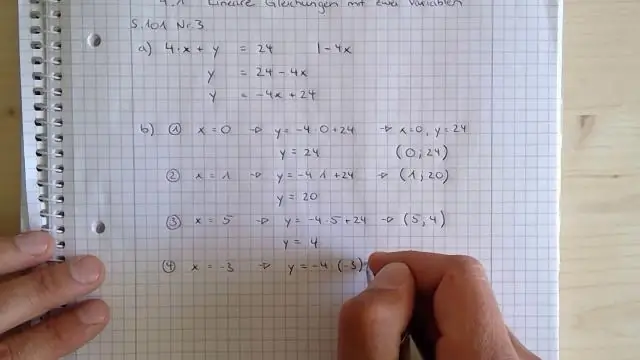 4.1 Lineare Gleichungen mit zwei Variablen
S.101 Nr.3
a) 4·x + y = 24 | -4x
y = 24 - 4x
y = -4x + 24
b) ① x = 0 → y = -4·0 + 24 → x=0, y=24
y = 24 (0; 24)
② x = 1 → y = -4·1 + 24 → (1; 20)
y = 20
③ x = 5 → y = -4·5 + 24 → (5; 4)
y = 4
④ x = -3 → y = -4·(-3)